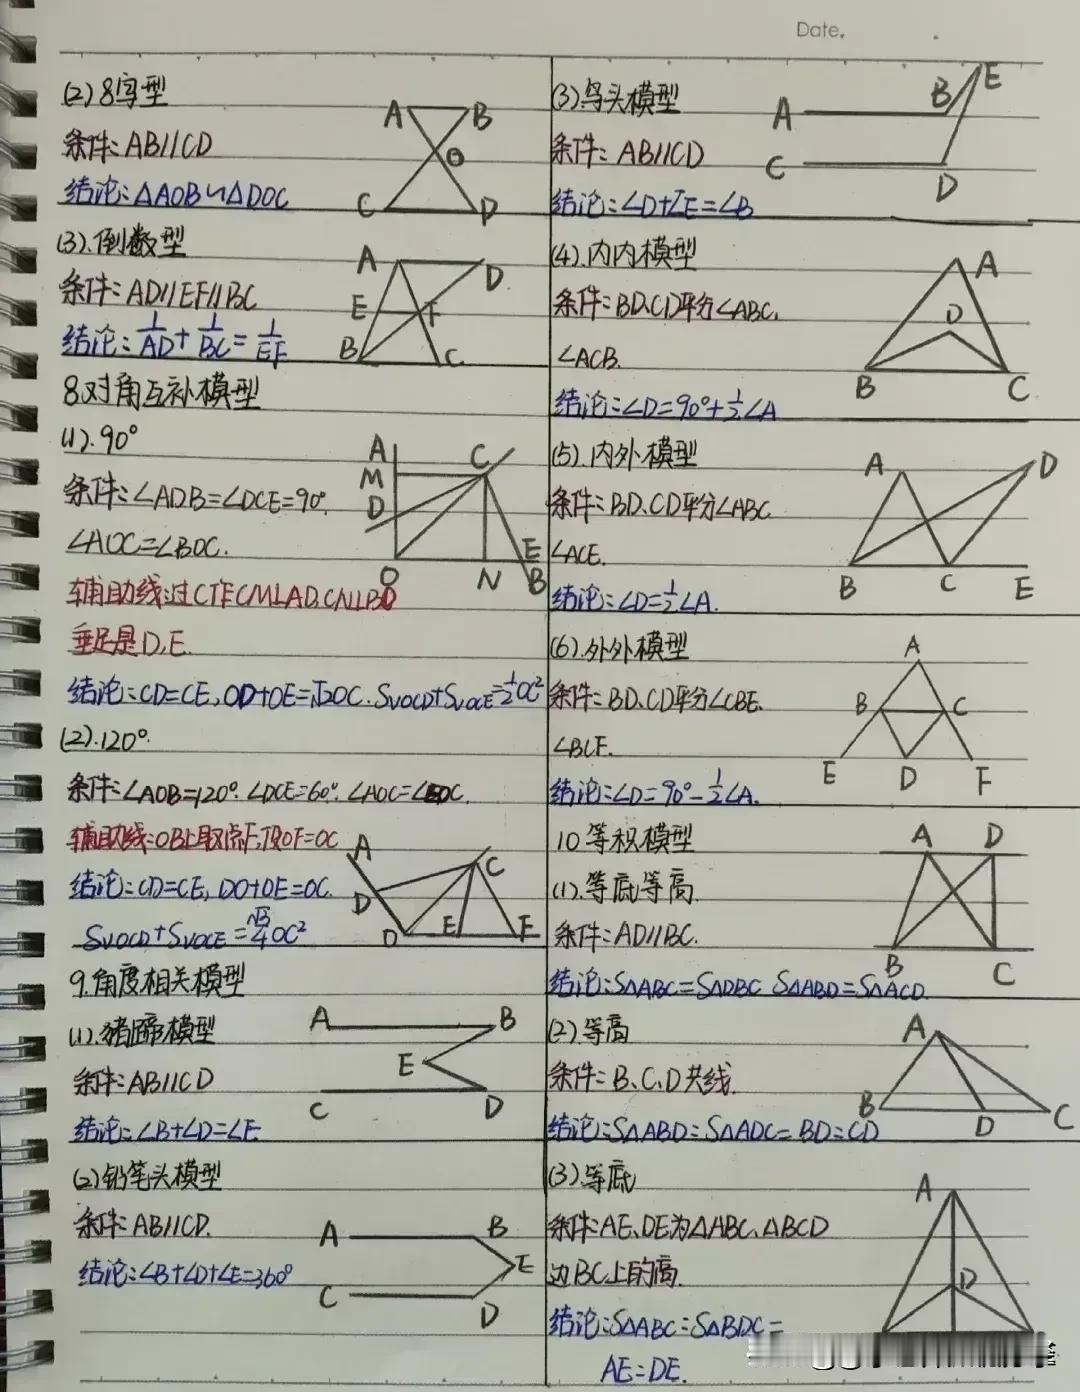 Date.
(2) 8字型
条件: AB//CD
结论: △AOB∽△DOC
A B
O
C D
(3). 倒数型
条件: AD//EF//BC
结论: 1/AD + 1/BC = 1/EF
A D
E F
B C
8.对角互补模型
(1). 90°
条件: ∠ADB=∠DCE=90°.
∠AOC=∠BOC.
辅助线:过C作CM⊥AD.CN⊥BO
垂足是D,E.
结论: CD=CE, OD+OE=√2OC. S▽OCD+S▽OCE=1/2OC²
A
M C
D
O N E
B
(2). 120°.
条件: ∠AOB=120°. ∠DCE=60°. ∠AOC=∠EOC.
辅助线:OB上取点F,使OF=OC
结论: CD=CE, DO+OE=OC.
S▽OCD+S▽OCE=√3/4OC²
A C
D
O E F
9.角度相关模型
(1).猪蹄模型
条件: AB//CD
结论: ∠B+∠D=∠E
A B
E
C D
(2)铅笔头模型
条件: AB//CD.
结论: ∠B+∠D+∠E=360°
A B
E
C D
(3). 鸟头模型
条件: AB//CD
结论: ∠D+∠E=∠B
E
A B
C D
(4).内内模型
条件: BD、CD平分∠ABC.
∠ACB.
结论: ∠D=90°+1/2∠A
A
D
B C
(5).内外模型
条件: BD、CD平分∠ABC
∠ACE.
结论: ∠D=1/2∠A.
A D
B C E
(6).外外模型
条件: BD、CD平分∠CBE.
∠BCF.
结论: ∠D=90°-1/2∠A.
A
B C
E D F
10等积模型
(1).等底等高.
条件: AD//BC.
结论: S△ABC=S△DBC S△ABD=S△ACD.
A D
B C
(2).等高
条件: B、C、D共线.
结论: S△ABD:S△ADC=BD:CD
A
B D C
(3).等底
条件:AE、DE为△ABC、△BCD
边BC上的高.
结论: S△ABC:S△BDC=
AE=DE.
A
D